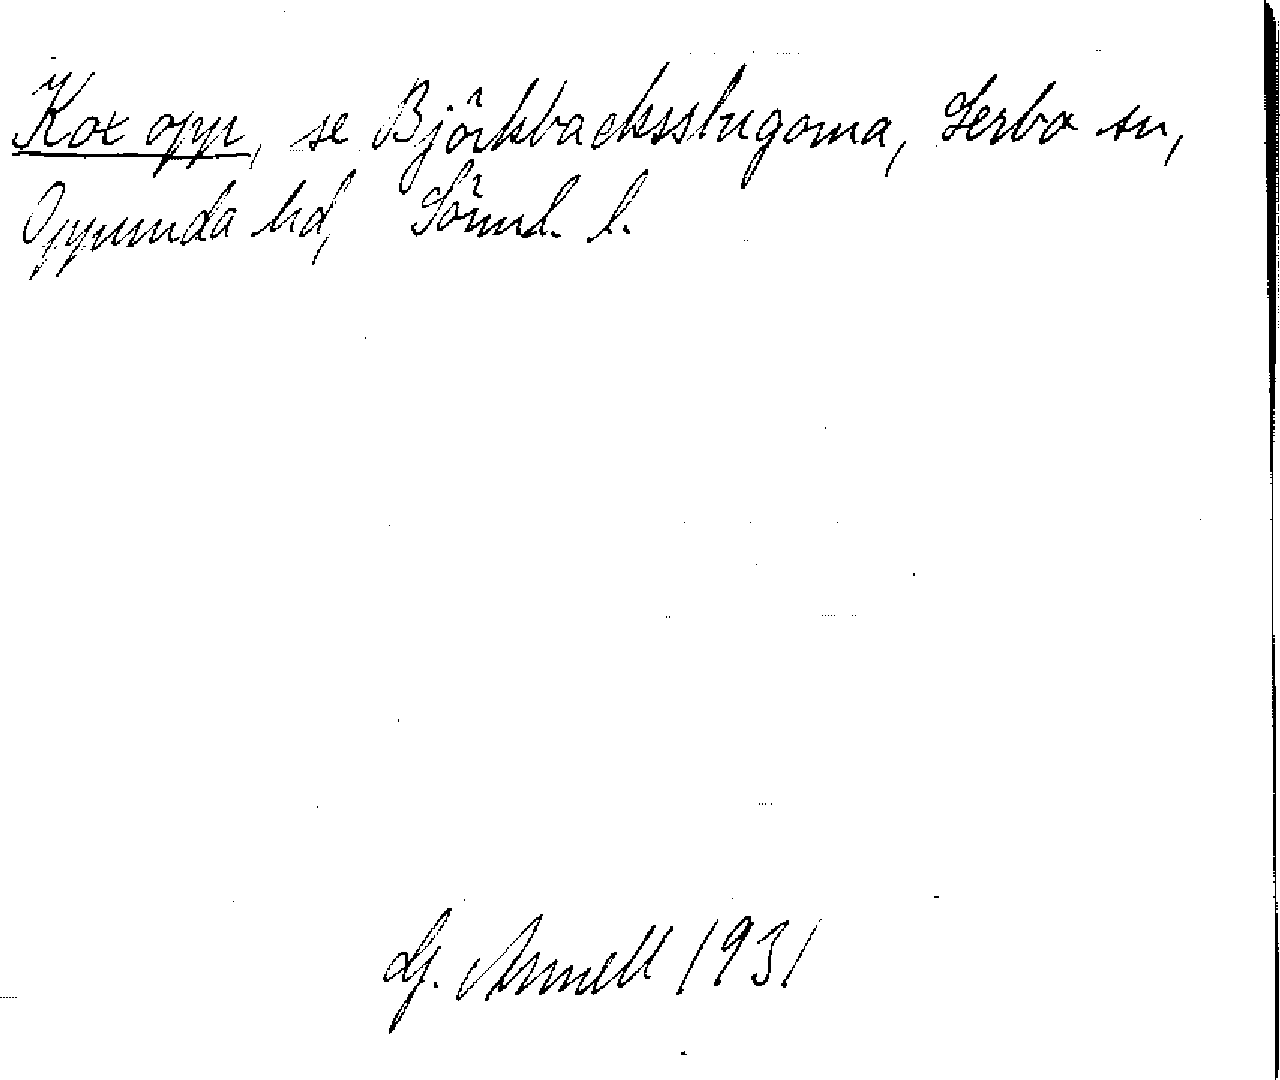 Kox opp, se Björkbacksstugorna, Lerbo sn,
Oppunda hd, Södml. l.
G. Annell 1931